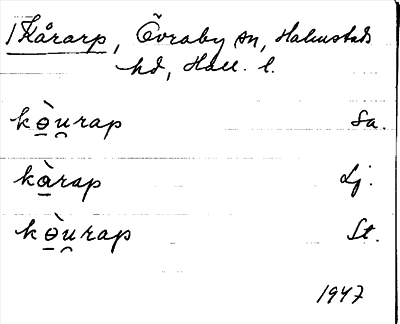 1 Kårarp, Övraby sn, Halmstads
hd, Hall. l.
kɵ̀u̯rap Sa.
kàrap Lj.
kɵ̀u̯rap St.
1947